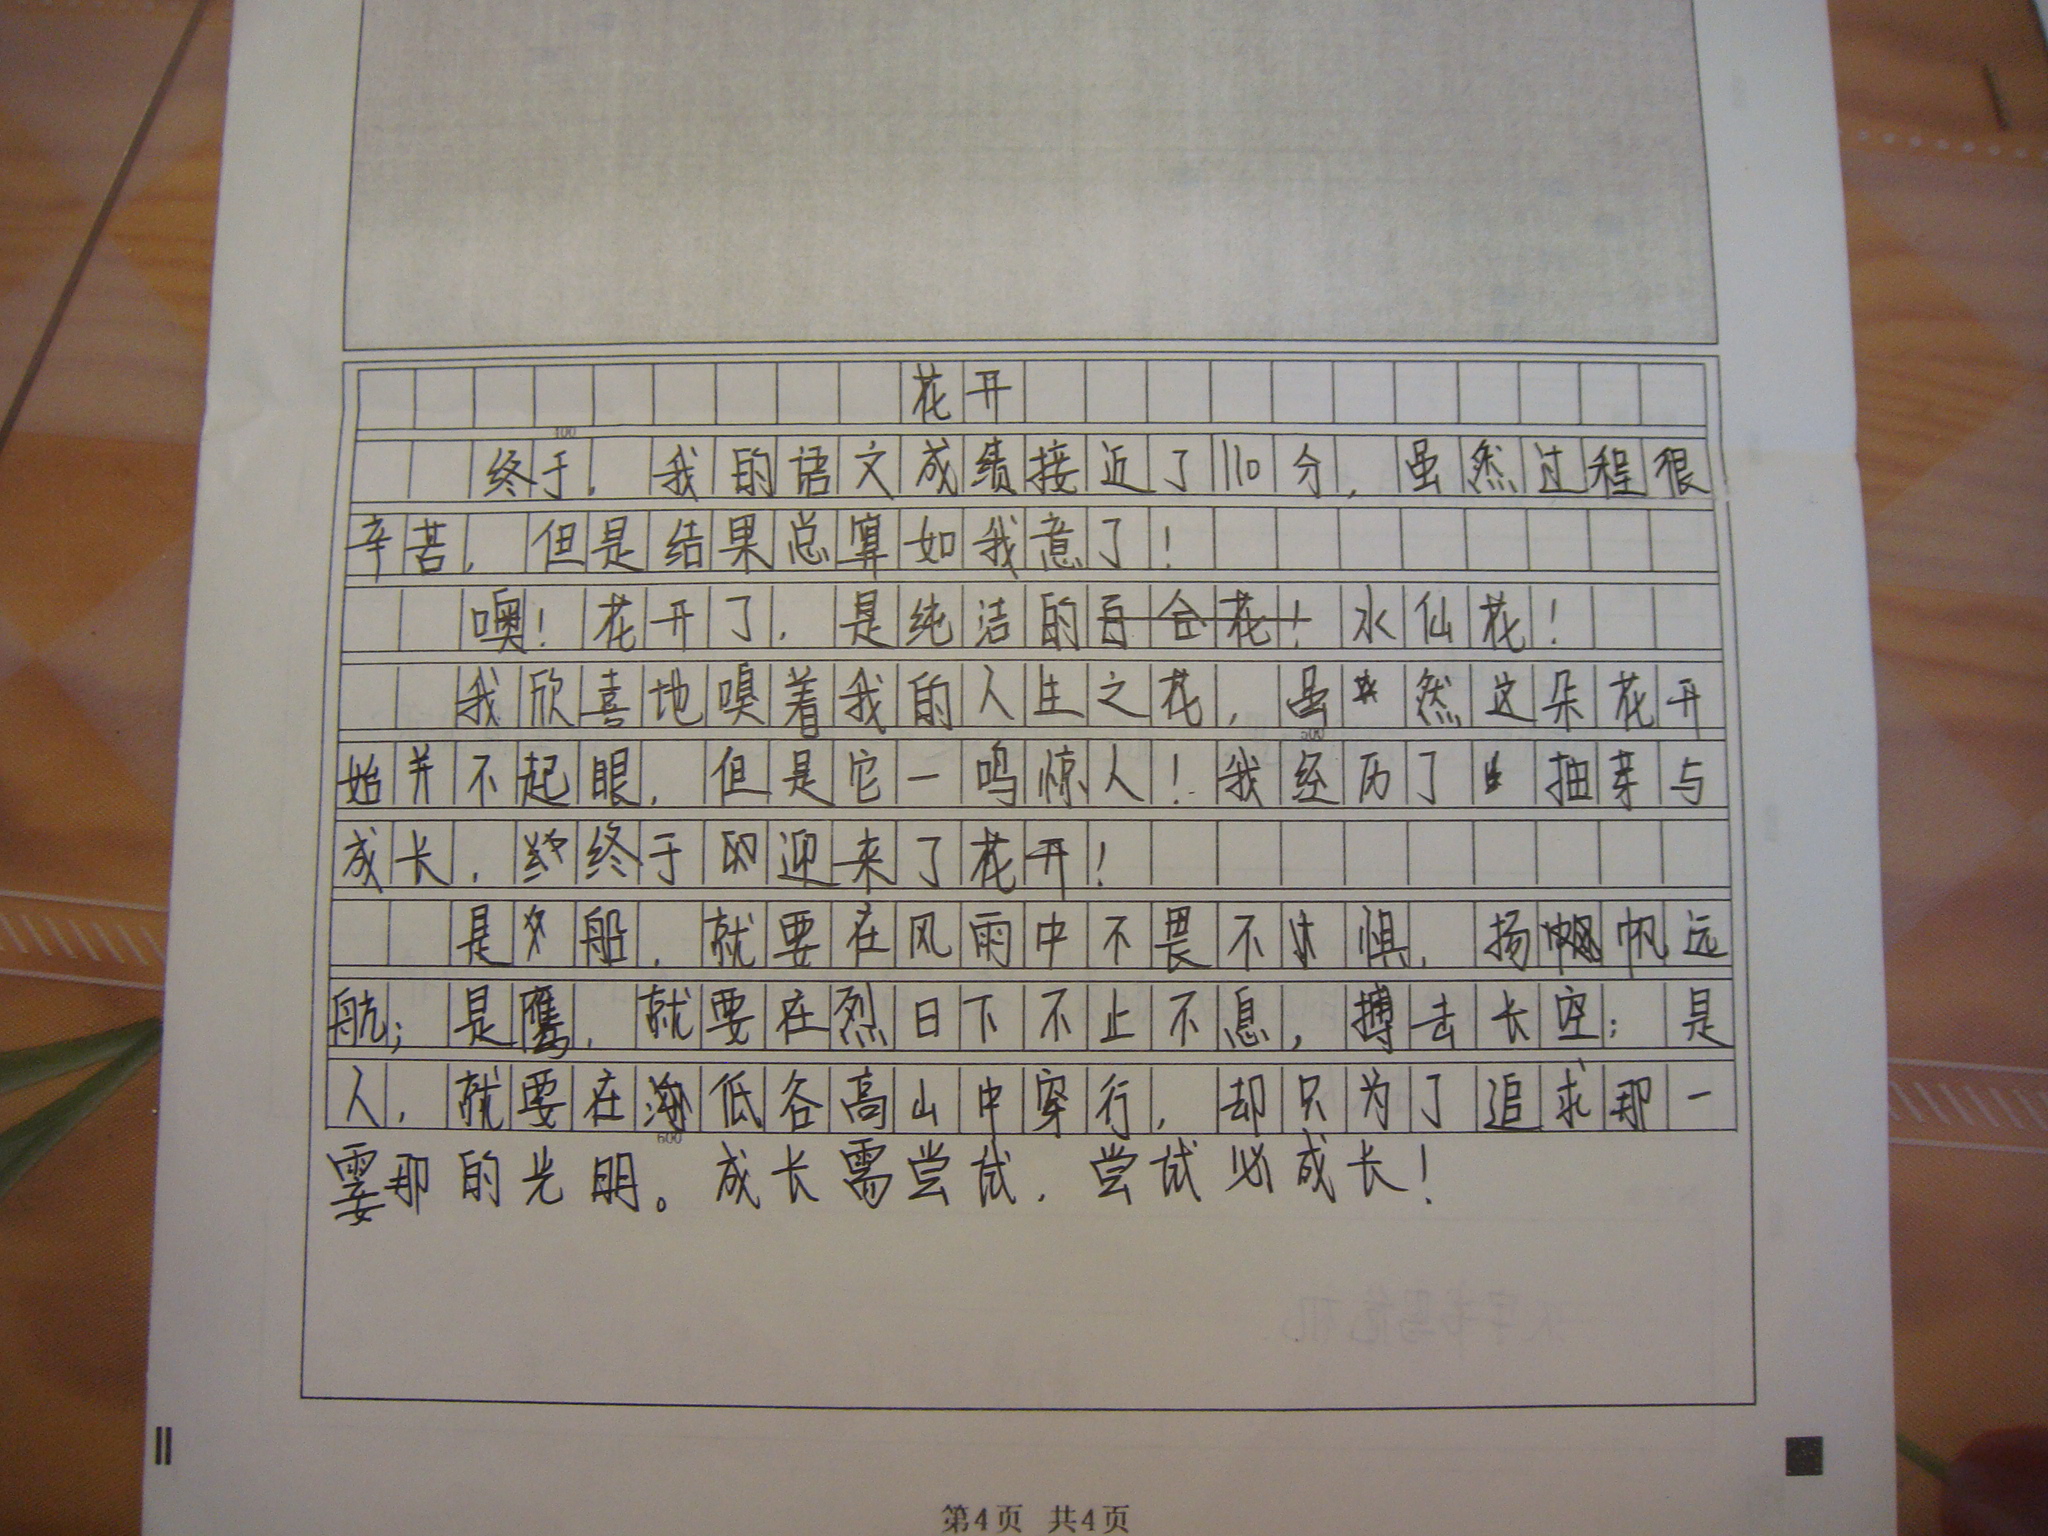 花开
终于，我的语文成绩接近了110分，虽然过程很
辛苦，但是结果总算如我意了！
噢！花开了，是纯洁的百合花！水仙花！
我欣喜地嗅着我的人生之花，虽然这朵花开
始并不起眼，但是它一鸣惊人！我经历了抽芽与
成长，终于迎来了花开！
是船，就要在风雨中不畏不惧，扬帆远
航；是鹰，就要在烈日下不止不息，搏击长空；是
人，就要在低谷高山中穿行，却只为了追求那一
霎那的光明。成长需尝试，尝试必成长！
第4页 共4页